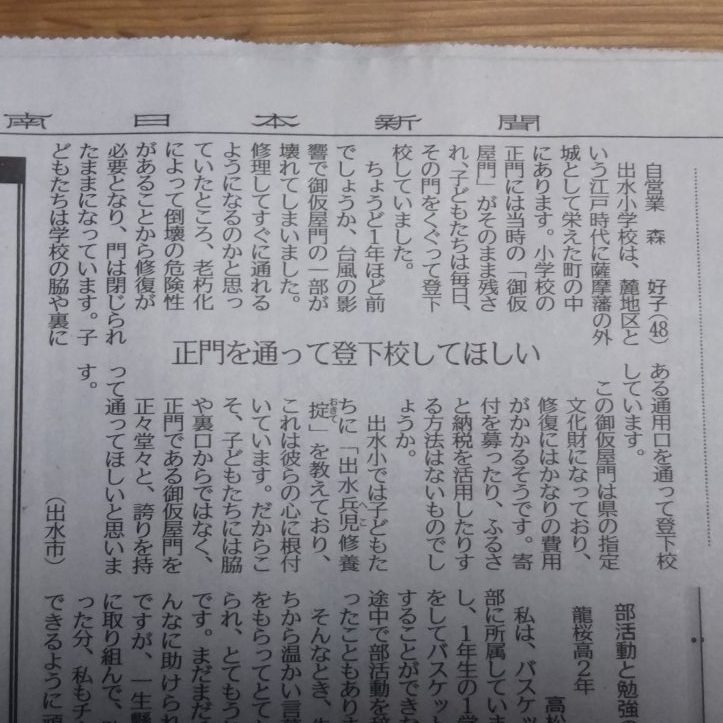 南日本新聞
正門を通って登下校してほしい
自営業 森 好子(48)
出水小学校は、麓地区と
いう江戸時代に薩摩藩の外
城として栄えた町の中
にあります。小学校の
正門には当時の「御仮
屋門」がそのまま残さ
れ、子どもたちは毎日、
その門をくぐって登下
校していました。
ちょうど1年ほど前
でしょうか、台風の影
響で御仮屋門の一部が
壊れてしまいました。
修理してすぐに通れる
ようになるのかと思っ
ていたところ、老朽化
によって倒壊の危険性
があることから修復が
必要となり、門は閉じられ
たままになっています。子
どもたちは学校の脇や裏に
ある通用口を通って登下校
しています。
この御仮屋門は県の指定
文化財になっており、
修復にはかなりの費用
がかかるそうです。寄
付を募ったり、ふるさ
と納税を活用したりす
る方法はないものでし
ょうか。
出水小では子どもた
ちに「出水兵児修養
掟」を教えており、
これは彼らの心に根付
いています。だからこ
そ、子どもたちには脇
や裏口からではなく、
正門である御仮屋門を
正々堂々と、誇りを持
って通ってほしいと思いま
す。
(出水市)
部活動と勉強
龍桜高2年
高松
私は、バスケッ
部に所属していま
し、1年生の1学
をしてバスケット
することができな
途中で部活動を
ったこともありま
そんなとき、
ちから温かい言葉
をもらってとて
られ、とてもう
です。まだまだ
んなに助けられ
ですが、一生懸
に取り組んで、
った分、私もチ
できるように